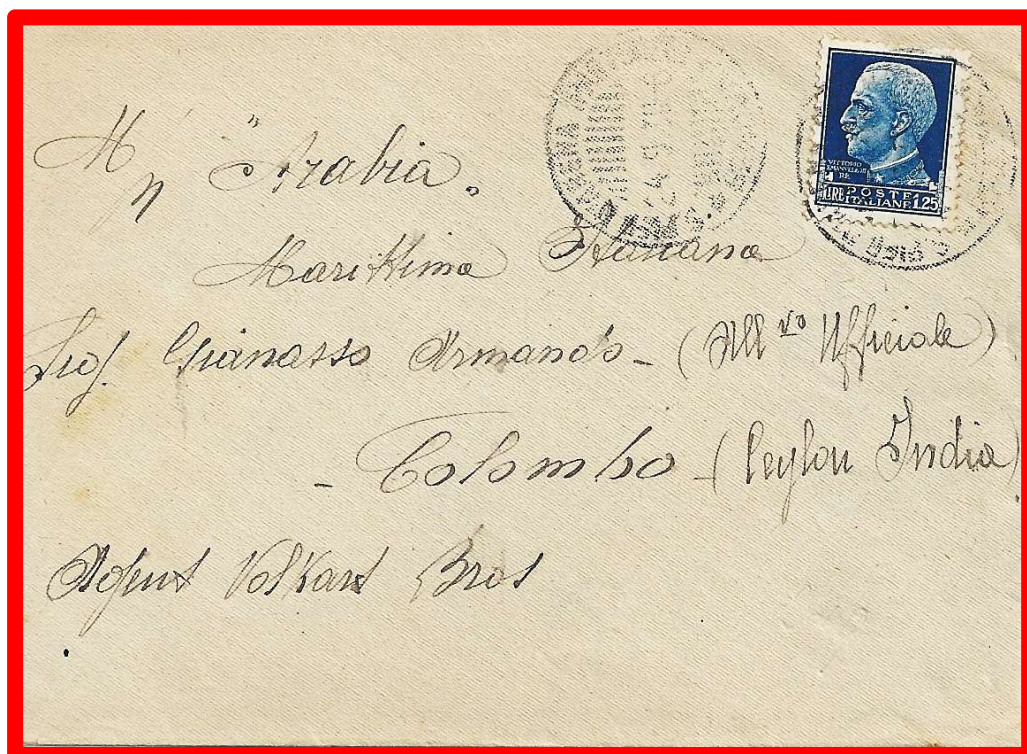 M/n "Arabia"
Marittima Italiana
Sig. Gianasso Armando - (All vo Ufficiale)
- Colombo - (Ceylon India)
Agent Volkart Bros
VITTORIO
EMANUELE III
RE
POSTE
LIRE ITALIANE 1.25